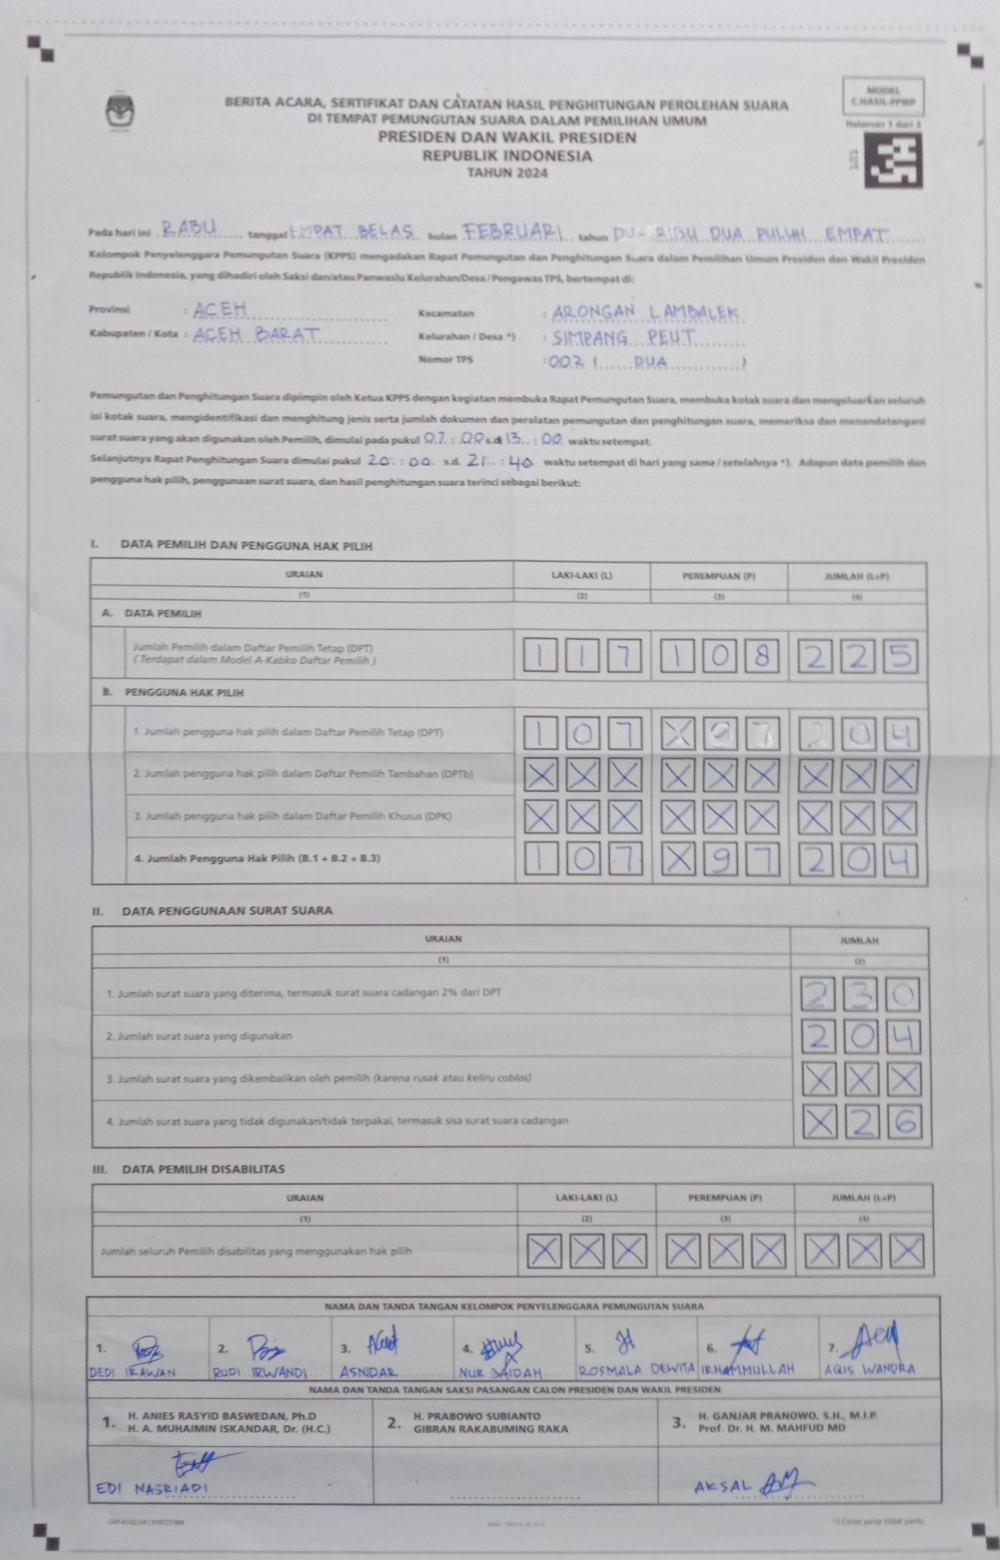 MODEL
C.HASIL-PPWP
Halaman 1 dari 3
BERITA ACARA, SERTIFIKAT DAN CATATAN HASIL PENGHITUNGAN PEROLEHAN SUARA
DI TEMPAT PEMUNGUTAN SUARA DALAM PEMILIHAN UMUM
PRESIDEN DAN WAKIL PRESIDEN
REPUBLIK INDONESIA
TAHUN 2024
Pada hari ini RABU tanggal EMPAT BELAS bulan FEBRUARI tahun DUA RIBU DUA PULUH EMPAT
Kelompok Penyelenggara Pemungutan Suara (KPPS) mengadakan Rapat Pemungutan dan Penghitungan Suara dalam Pemilihan Umum Presiden dan Wakil Presiden
Republik Indonesia, yang dihadiri oleh Saksi dan/atau Panwaslu Kelurahan/Desa / Pengawas TPS, bertempat di:
Provinsi : ACEH Kecamatan : ARONGAN LAMBALEK
Kabupaten / Kota : ACEH BARAT Kelurahan / Desa *) : SIMPANG PEUT
Nomor TPS : 002 (......DUA............)
Pemungutan dan Penghitungan Suara dipimpin oleh Ketua KPPS dengan kegiatan membuka Rapat Pemungutan Suara, membuka kotak suara dan mengeluarkan seluruh
isi kotak suara, mengidentifikasi dan menghitung jenis serta jumlah dokumen dan peralatan pemungutan dan penghitungan suara, memeriksa dan menandatangani
surat suara yang akan digunakan oleh Pemilih, dimulai pada pukul 07 : 00 s.d. 13 : 00 waktu setempat.
Selanjutnya Rapat Penghitungan Suara dimulai pukul 20 : 00 s.d. 21 : 40 waktu setempat di hari yang sama / setelahnya *). Adapun data pemilih dan
pengguna hak pilih, penggunaan surat suara, dan hasil penghitungan suara terinci sebagai berikut:
I. DATA PEMILIH DAN PENGGUNA HAK PILIH
URAIAN LAKI-LAKI (L) PEREMPUAN (P) JUMLAH (L+P)
(1) (2) (3) (4)
A. DATA PEMILIH
Jumlah Pemilih dalam Daftar Pemilih Tetap (DPT) 1 1 7 1 0 8 2 2 5
( Terdapat dalam Model A-Kabko Daftar Pemilih )
B. PENGGUNA HAK PILIH
1. Jumlah pengguna hak pilih dalam Daftar Pemilih Tetap (DPT) 1 0 7 X 9 7 2 0 4
2. Jumlah pengguna hak pilih dalam Daftar Pemilih Tambahan (DPTb) X X X X X X X X X
3. Jumlah pengguna hak pilih dalam Daftar Pemilih Khusus (DPK) X X X X X X X X X
4. Jumlah Pengguna Hak Pilih (B.1 + B.2 + B.3) 1 0 7 X 9 7 2 0 4
II. DATA PENGGUNAAN SURAT SUARA
URAIAN JUMLAH
(1) (2)
1. Jumlah surat suara yang diterima, termasuk surat suara cadangan 2% dari DPT 2 3 0
2. Jumlah surat suara yang digunakan 2 0 4
3. Jumlah surat suara yang dikembalikan oleh pemilih (karena rusak atau keliru coblos) X X X
4. Jumlah surat suara yang tidak digunakan/tidak terpakai, termasuk sisa surat suara cadangan X 2 6
III. DATA PEMILIH DISABILITAS
URAIAN LAKI-LAKI (L) PEREMPUAN (P) JUMLAH (L+P)
(1) (2) (3) (4)
Jumlah seluruh Pemilih disabilitas yang menggunakan hak pilih X X X X X X X X X
NAMA DAN TANDA TANGAN KELOMPOK PENYELENGGARA PEMUNGUTAN SUARA
1. 2. 3. 4. 5. 6. 7.
DEDI IRAWAN RUDI IRWANDI ASNIDAR NUR SAIDAH ROSMALA DEWITA IRHAMMULLAH AGIS WANDRA
NAMA DAN TANDA TANGAN SAKSI PASANGAN CALON PRESIDEN DAN WAKIL PRESIDEN
1. H. ANIES RASYID BASWEDAN, Ph.D
H. A. MUHAIMIN ISKANDAR, Dr. (H.C.)
2. H. PRABOWO SUBIANTO
GIBRAN RAKABUMING RAKA
3. H. GANJAR PRANOWO, S.H., M.I.P.
Prof. Dr. H. M. MAHFUD MD
EDI NASRIADI AKSAL
*) Coret yang tidak perlu